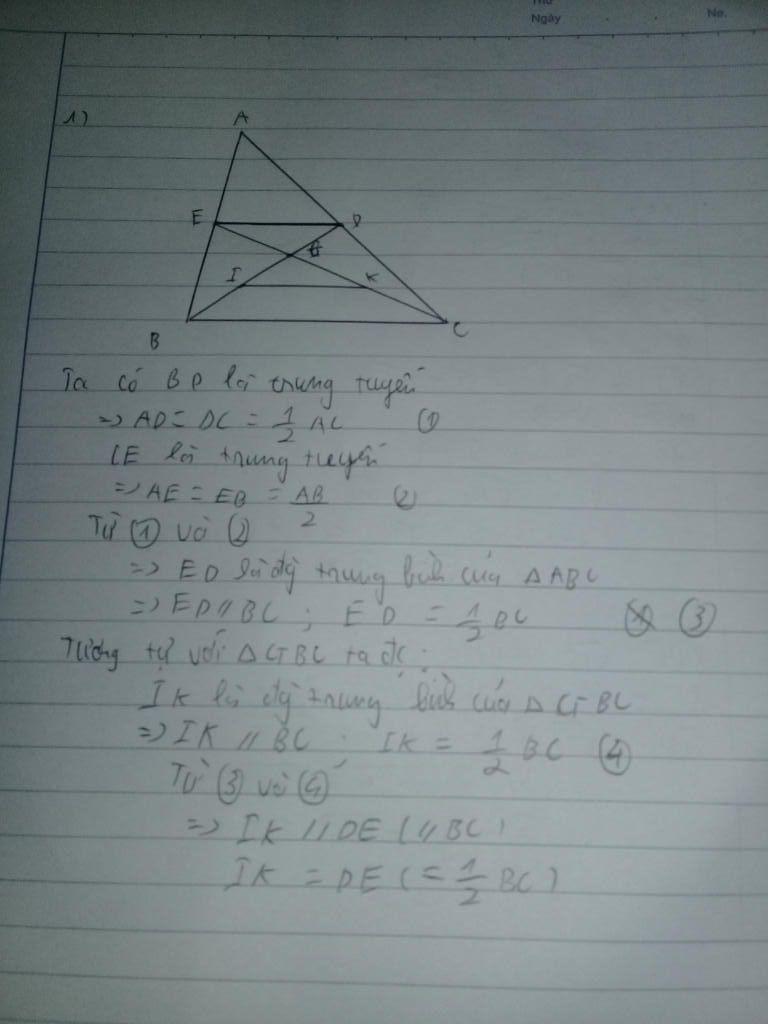 Thứ
Ngày
No.
1)
A
E
D
G
I
K
B
C
Ta có BD là trung tuyến
=> AD = DC = 1/2 AC (1)
CE là trung tuyến
=> AE = EB = AB/2 (2)
Từ (1) và (2)
=> ED là đg trung bình của Δ ABC
=> ED // BC ; ED = 1/2 BC (3)
Tương tự với Δ GBC ta đc :
IK là đg trung bình của Δ GBC
=> IK // BC ; IK = 1/2 BC (4)
Từ (3) và (4)
=> IK // DE ( // BC )
IK = DE ( = 1/2 BC )